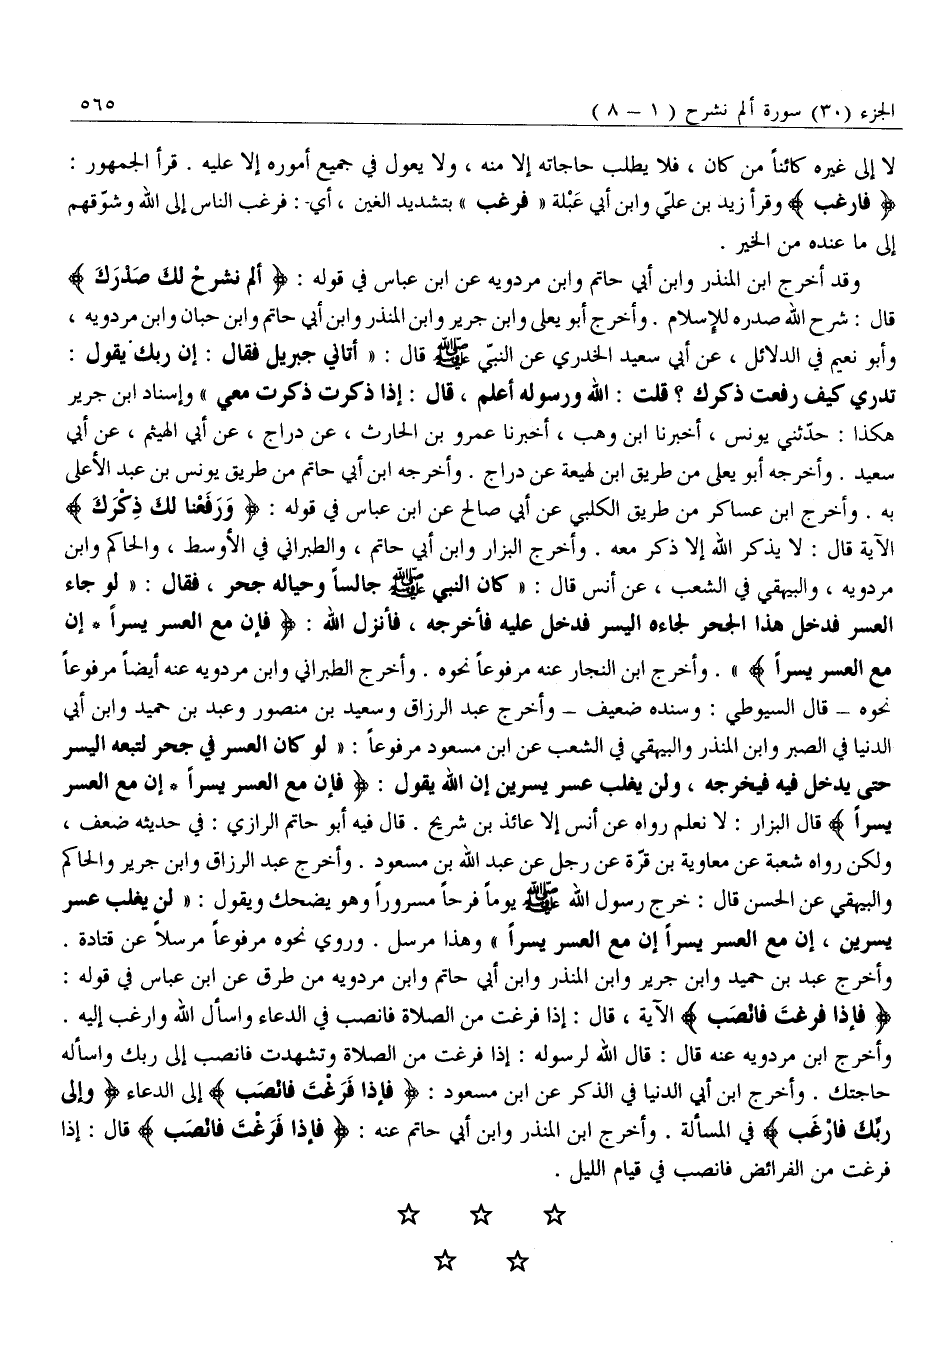 الجزء (٣٠) سورة ألم نشرح ( ١ – ٨ ) ٥٦٥
لا إلى غيره كائناً من كان ، فلا يطلب حاجاته إلا منه ، ولا يعول في جميع أموره إلا عليه . قرأ الجمهور :
﴿ فارغب ﴾ وقرأ زيد بن عليّ وابن أبي عَبْلة « فرغب » بتشديد الغين ، أي : فرغب الناس إلى الله وشوّقهم
إلى ما عنده من الخير .
وقد أخرج ابن المنذر وابن أبي حاتم وابن مردويه عن ابن عباس في قوله : ﴿ ألم نشرحْ لكَ صَدْرَكَ ﴾
قال : شرح الله صدره للإسلام . وأخرج أبو يعلى وابن جرير وابن المنذر وابن أبي حاتم وابن حبان وابن مردويه ،
وأبو نعيم في الدلائل ، عن أبي سعيد الخدري عن النبيّ ﷺ قال : « أتاني جبريل فقال : إن ربك يقول :
تدري كيف رفعت ذكرك ؟ قلت : الله ورسوله أعلم ، قال : إذا ذكرت ذكرت معي » وإسناد ابن جرير
هكذا : حدّثني يونس ، أخبرنا ابن وهب ، أخبرنا عمرو بن الحارث ، عن دراج ، عن أبي الهيثم ، عن أبي
سعيد . وأخرجه أبو يعلى من طريق ابن لهيعة عن دراج . وأخرجه ابن أبي حاتم من طريق يونس بن عبد الأعلى
به . وأخرج ابن عساكر من طريق الكلبي عن أبي صالح عن ابن عباس في قوله : ﴿ وَرَفَعْنا لكَ ذِكْرَكَ ﴾
الآية قال : لا يذكر الله إلا ذكر معه . وأخرج البزار وابن أبي حاتم ، والطبراني في الأوسط ، والحاكم وابن
مردويه ، والبيهقي في الشعب ، عن أنس قال : « كان النبي ﷺ جالساً وحياله جحر ، فقال : « لو جاء
العسر فدخل هذا الجحر لجاءه اليسر فدخل عليه فأخرجه ، فأنزل الله : ﴿ فإن مع العسر يسراً * إن
مع العسر يسراً ﴾ » . وأخرج ابن النجار عنه مرفوعاً نحوه . وأخرج الطبراني وابن مردويه عنه أيضاً مرفوعاً
نحوه – قال السيوطي : وسنده ضعيف – وأخرج عبد الرزاق وسعيد بن منصور وعبد بن حميد وابن أبي
الدنيا في الصبر وابن المنذر والبيهقي في الشعب عن ابن مسعود مرفوعاً : « لو كان العسر في جحر لتبعه اليسر
حتى يدخل فيه فيخرجه ، ولن يغلب عسر يسرين إن الله يقول : ﴿ فإن مع العسر يسراً * إن مع العسر
يسراً ﴾ قال البزار : لا نعلم رواه عن أنس إلا عائذ بن شريح . قال فيه أبو حاتم الرازي : في حديثه ضعف ،
ولكن رواه شعبة عن معاوية بن قرّة عن رجل عن عبد الله بن مسعود . وأخرج عبد الرزاق وابن جرير والحاكم
والبيهقي عن الحسن قال : خرج رسول الله ﷺ يوماً فرحاً مسروراً وهو يضحك ويقول : « لن يغلب عسر
يسرين ، إن مع العسر يسراً إن مع العسر يسراً » وهذا مرسل . وروي نحوه مرفوعاً مرسلاً عن قتادة .
وأخرج عبد بن حميد وابن جرير وابن المنذر وابن أبي حاتم وابن مردويه من طرق عن ابن عباس في قوله :
﴿ فإذا فرغتَ فانْصَب ﴾ الآية ، قال : إذا فرغت من الصلاة فانصب في الدعاء واسأل الله وارغب إليه .
وأخرج ابن مردويه عنه قال : قال الله لرسوله : إذا فرغت من الصلاة وتشهدت فانصب إلى ربك واسأله
حاجتك . وأخرج ابن أبي الدنيا في الذكر عن ابن مسعود : ﴿ فإذا فَرَغْتَ فانْصَب ﴾ إلى الدعاء ﴿ وإلى
ربِّكَ فارْغَب ﴾ في المسألة . وأخرج ابن المنذر وابن أبي حاتم عنه : ﴿ فإذا فَرَغْتَ فانْصَب ﴾ قال : إذا
فرغت من الفرائض فانصب في قيام الليل .